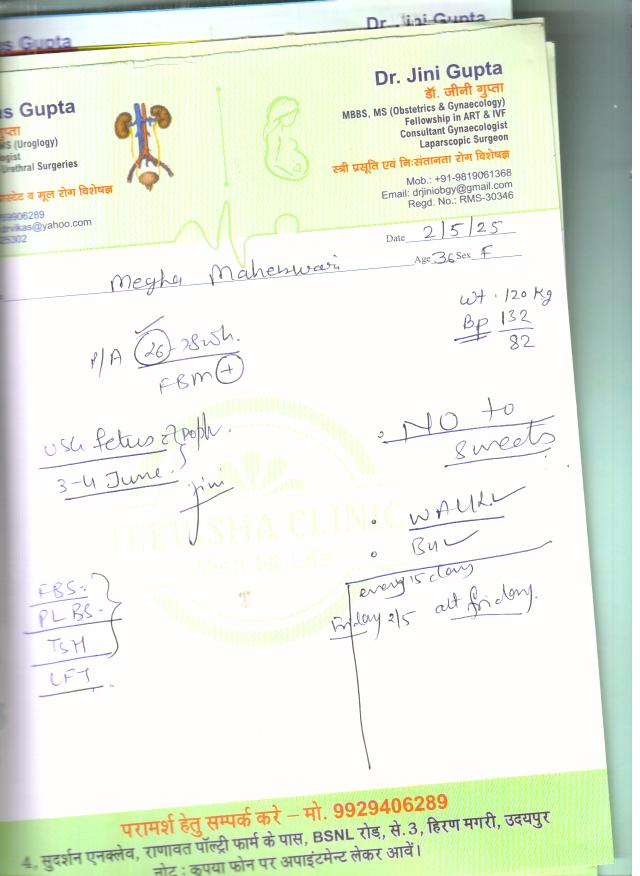 Dr. Jini Gupta
as Gupta
as Gupta
गुप्ता
MS (Urology)
ogist
Urethral Surgeries
स्टेट व मूत्र रोग विशेषज्ञ
59906289
drvikas@yahoo.com
25302
Dr. Jini Gupta
डॉ. जीनी गुप्ता
MBBS, MS (Obstetrics & Gynaecology)
Fellowship in ART & IVF
Consultant Gynaecologist
Laparscopic Surgeon
स्त्री प्रसूति एवं निःसंतानता रोग विशेषज्ञ
Mob.: +91-9819061368
Email: drjiniobgy@gmail.com
Regd. No.: RMS-30346
Date 2/5/25
Megha Maheswari
Age 36 Sex F
Wt. 120 Kg
Bp 132
82
P/A 26-28wk.
FBM +
USG fetus
3-4 June.
Jini
NO to
Sweets
WALK
every 15 days
Friday 2/5 alt friday.
FBS-
PLBS-
TSH
LFT
JEEVISHA CLINIC
परामर्श हेतु सम्पर्क करे – मो. 9929406289
4, सुदर्शन एनक्लेव, राणावत पॉल्ट्री फार्म के पास, BSNL रोड़, से. 3, हिरण मगरी, उदयपुर
नोट : कृपया फोन पर अपाइंटमेन्ट लेकर आवें।